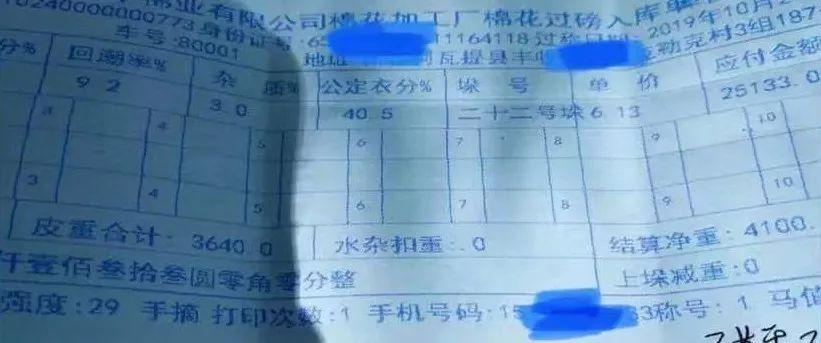 棉业有限公司棉花加工厂棉花过磅入库单
10240000000773 身份证号:65 11164118 过称日期:2019年10月2
车号:80001 地址 瓦提县丰收 克村3组187
分% 回潮率% 杂 质% 公定衣分% 垛 号 单 价 应付金额
9 2 3.0 40.5 二十二号垛 6.13 25133.0
3 4 5 6 7 8 9 10
3 4 5 6 7 8 9 10
皮重合计: 3640.0 水杂扣重: .0 结算净重: 4100.
仟壹佰叁拾叁圆零角零分整 上垛减重:0
强度:29 手摘 打印次数:1 手机号码:15 33称号: 1 马值